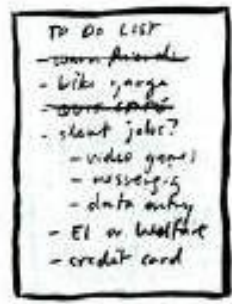 TO DO LIST
- learn friends
- bike garage
- 
- slent jobs?
- video games
- messengig
- data entry
- EI or Welfare
- credit card